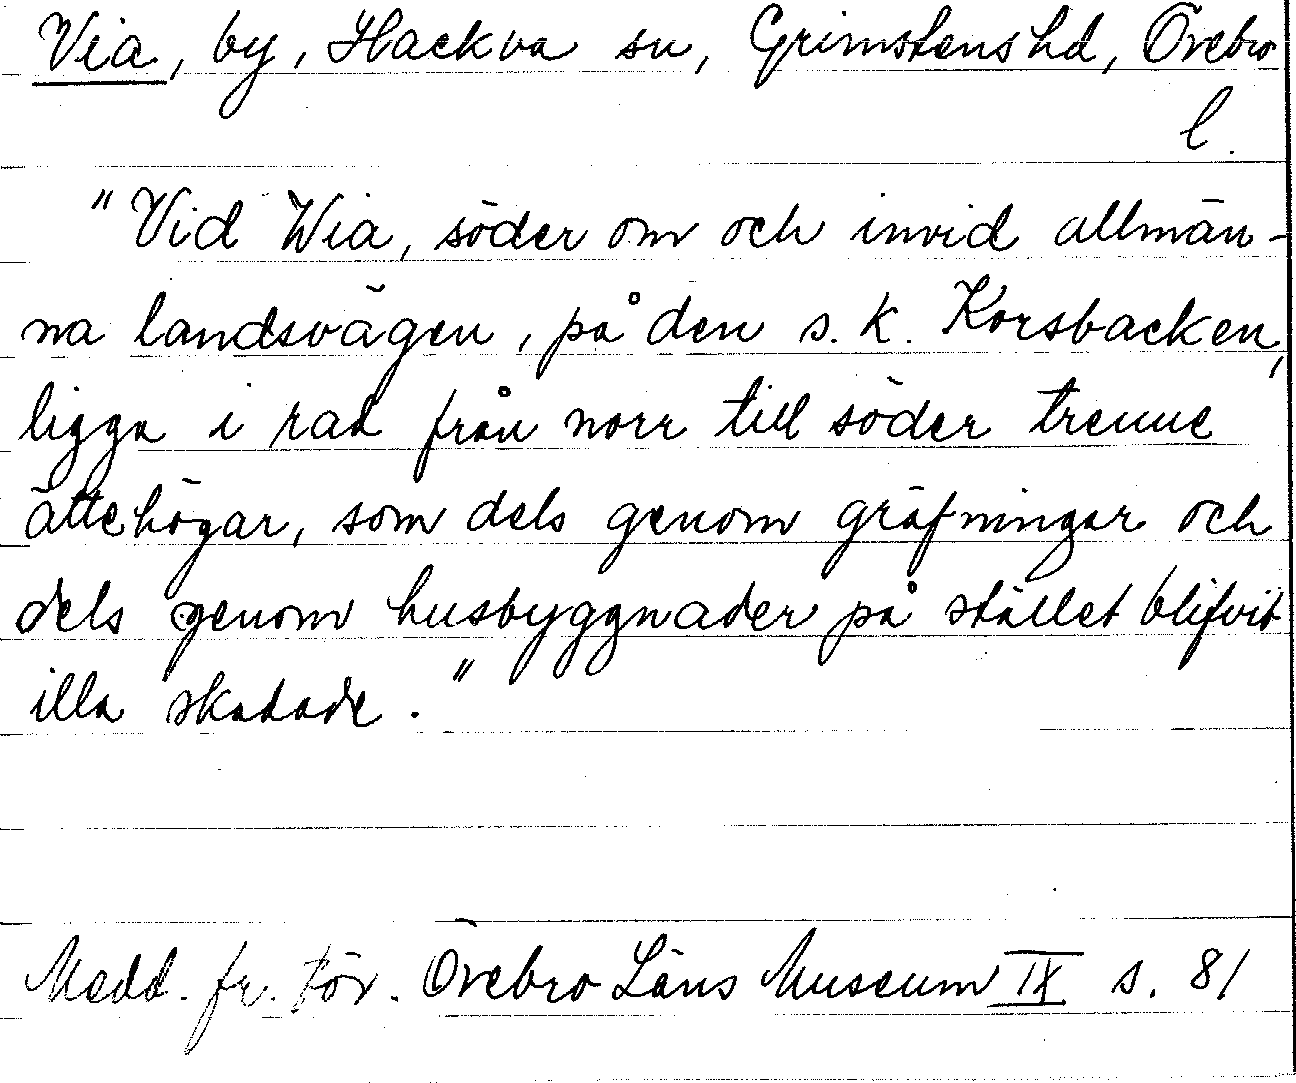 Via, by, Hackva sn, Grimstens hd, Örebro
l.
"Vid Wia, söder om och invid allmän-
na landsvägen, på den s.k. Korsbacken,
ligga i rad från norr till söder trenne
ättehögar, som dels genom gräfningar och
dels genom husbyggnader på stället blifvit
illa skadade."
Medd. fr. För. Örebro Läns Museum IX s. 81